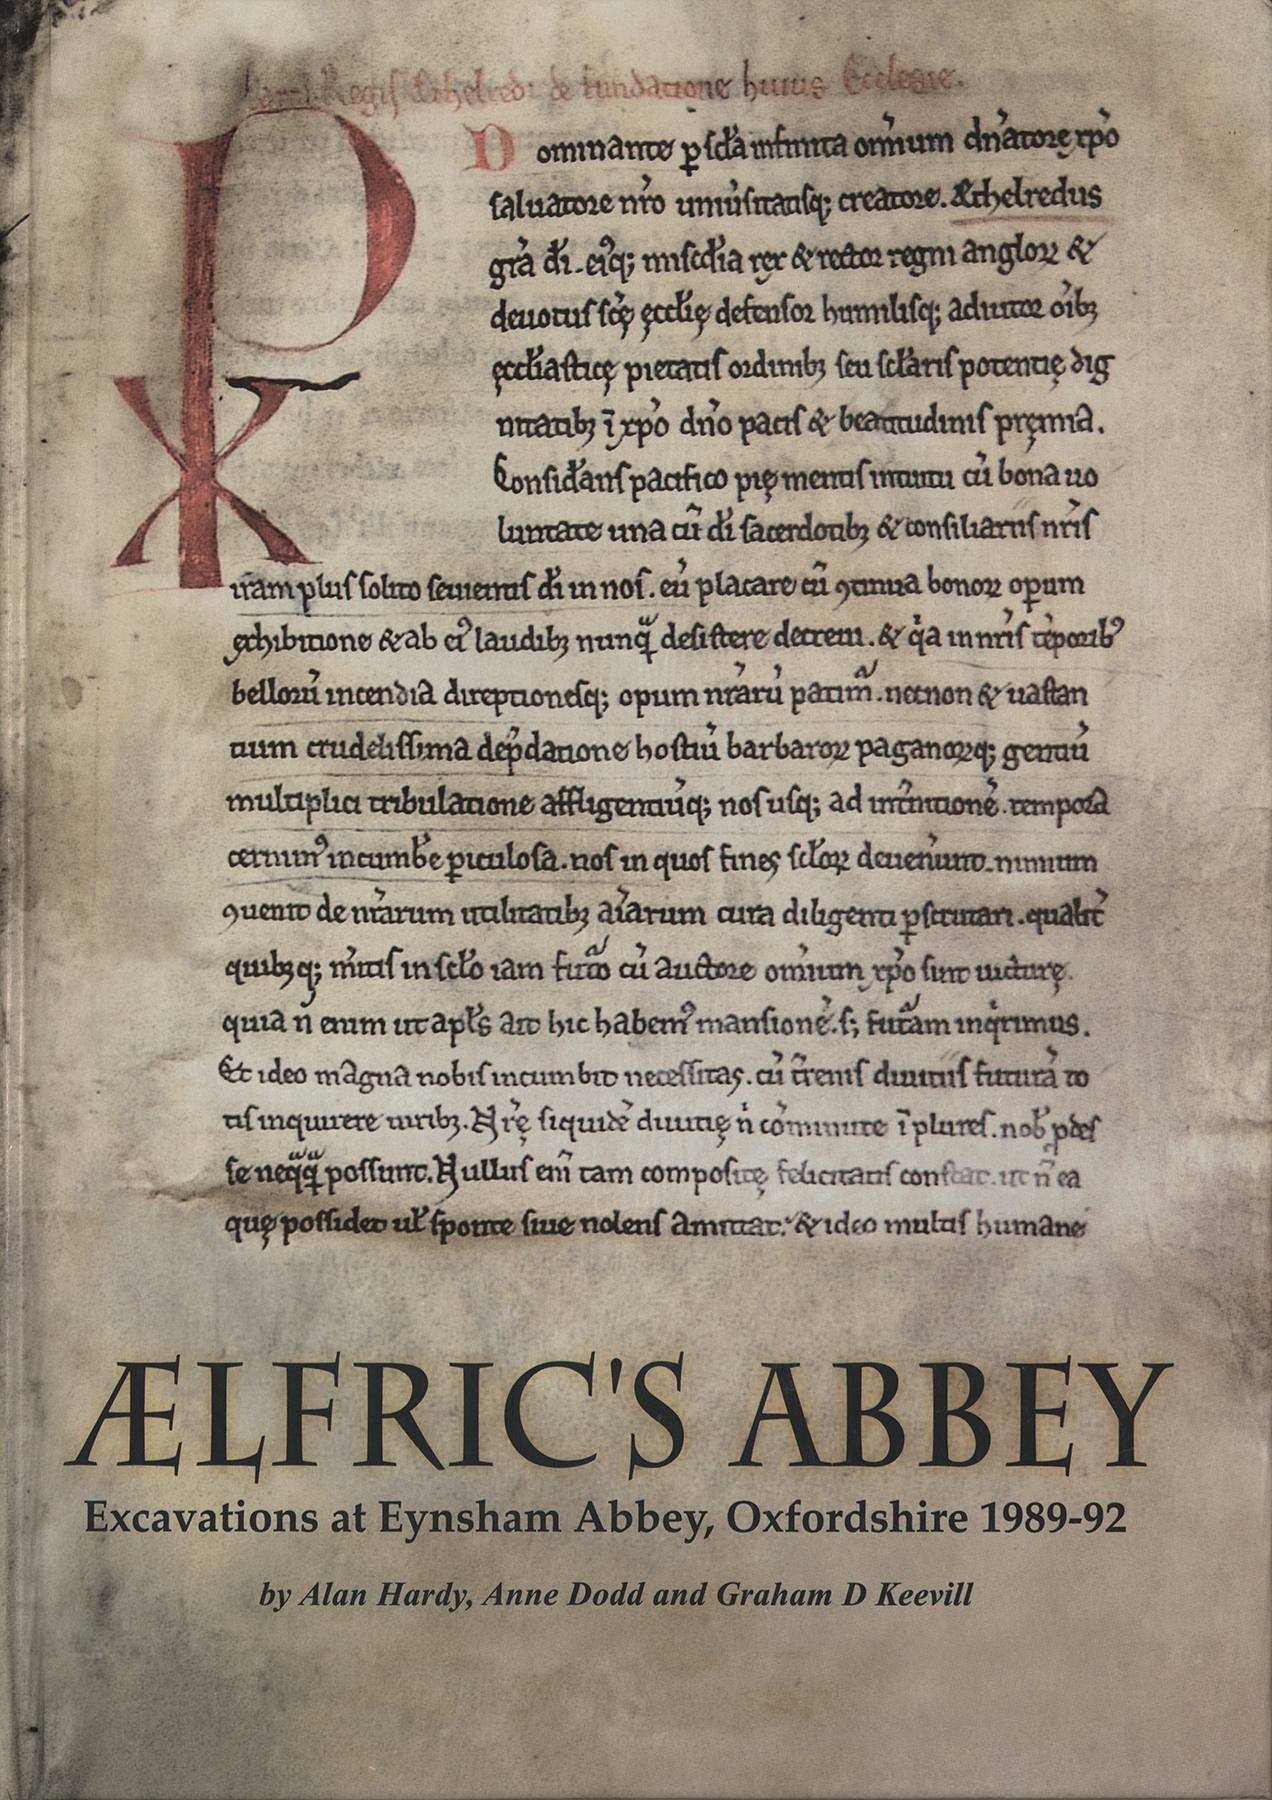 Regis Æthelredi de fundatione huius Ecclesie.
Dominante p̱ sc̄la infinita om̄ium dn̄atore xp̄o
saluatore nr̄o uniu̓sitatisq; creatore. Æthelredus
gr̄a dī. eiꝰq; mis̄cdīa rex & rector regni angloꝝ &
deuotus sc̄ę ęccłię defensor humilisq; adiutor oīb;
ęccłiasticę pietatis ordinib; seu sc̄laris potentię dig
nitatib; ī xp̄o dn̄o pacis & beatitudinis pręmia.
Consid̓ans pacifico pię mentis intuitu cū bona uo
luntate una cū dī sacerdotib; & consiliariis nr̄is
iram plus solito seuientis dī in nos. eū placare cū ꝯtinua bonoꝝ opum
exhibitione & ab eiꝰ laudib; nunqᷓ desistere decreui. & qͥa in nr̄is tēporibꝰ
belloꝝ incendia direptionesq; opum nr̄arū patim̓. necnon & uastan
tium crudelissima dep̄datione hostiū barbaroꝝ paganoꝝq; gentiū
multiplici tribulatione affligentiūq; nos usq; ad int̓nitionē. tempora
cernimꝰ incumb̓e ꝑiculosa. nos in quos fines sc̄loꝝ deuen̓unt. nimium
ꝯuenit de nr̄arum utilitatib; aīarum cura diligenti ꝑscrutari. qualit̓
quib;q; m̓itis in sc̄lo iam fut̓o cū auctore om̄ium xp̄o sint uicturę.
quia n̄ enim ut apl̄s ait hic habemꝰ mansionē. s; futᷓam inqͥrimus.
Et ideo magna nobis incumbit necessitas. cū t̓renis diuitiis futurā to
tis inquirere uirib;. Nr̄ę siquidē diuitię n̄ cōminute ī plures. nob̄ ꝓdes
se neqᷓqᷓ possunt. Nullus eni̅ tam compositę felicitatis constat. ut n̄ ea
quę possidet uł sponte siue nolens amittat. & ideo multis humane
ÆLFRIC'S ABBEY
Excavations at Eynsham Abbey, Oxfordshire 1989-92
by Alan Hardy, Anne Dodd and Graham D Keevill